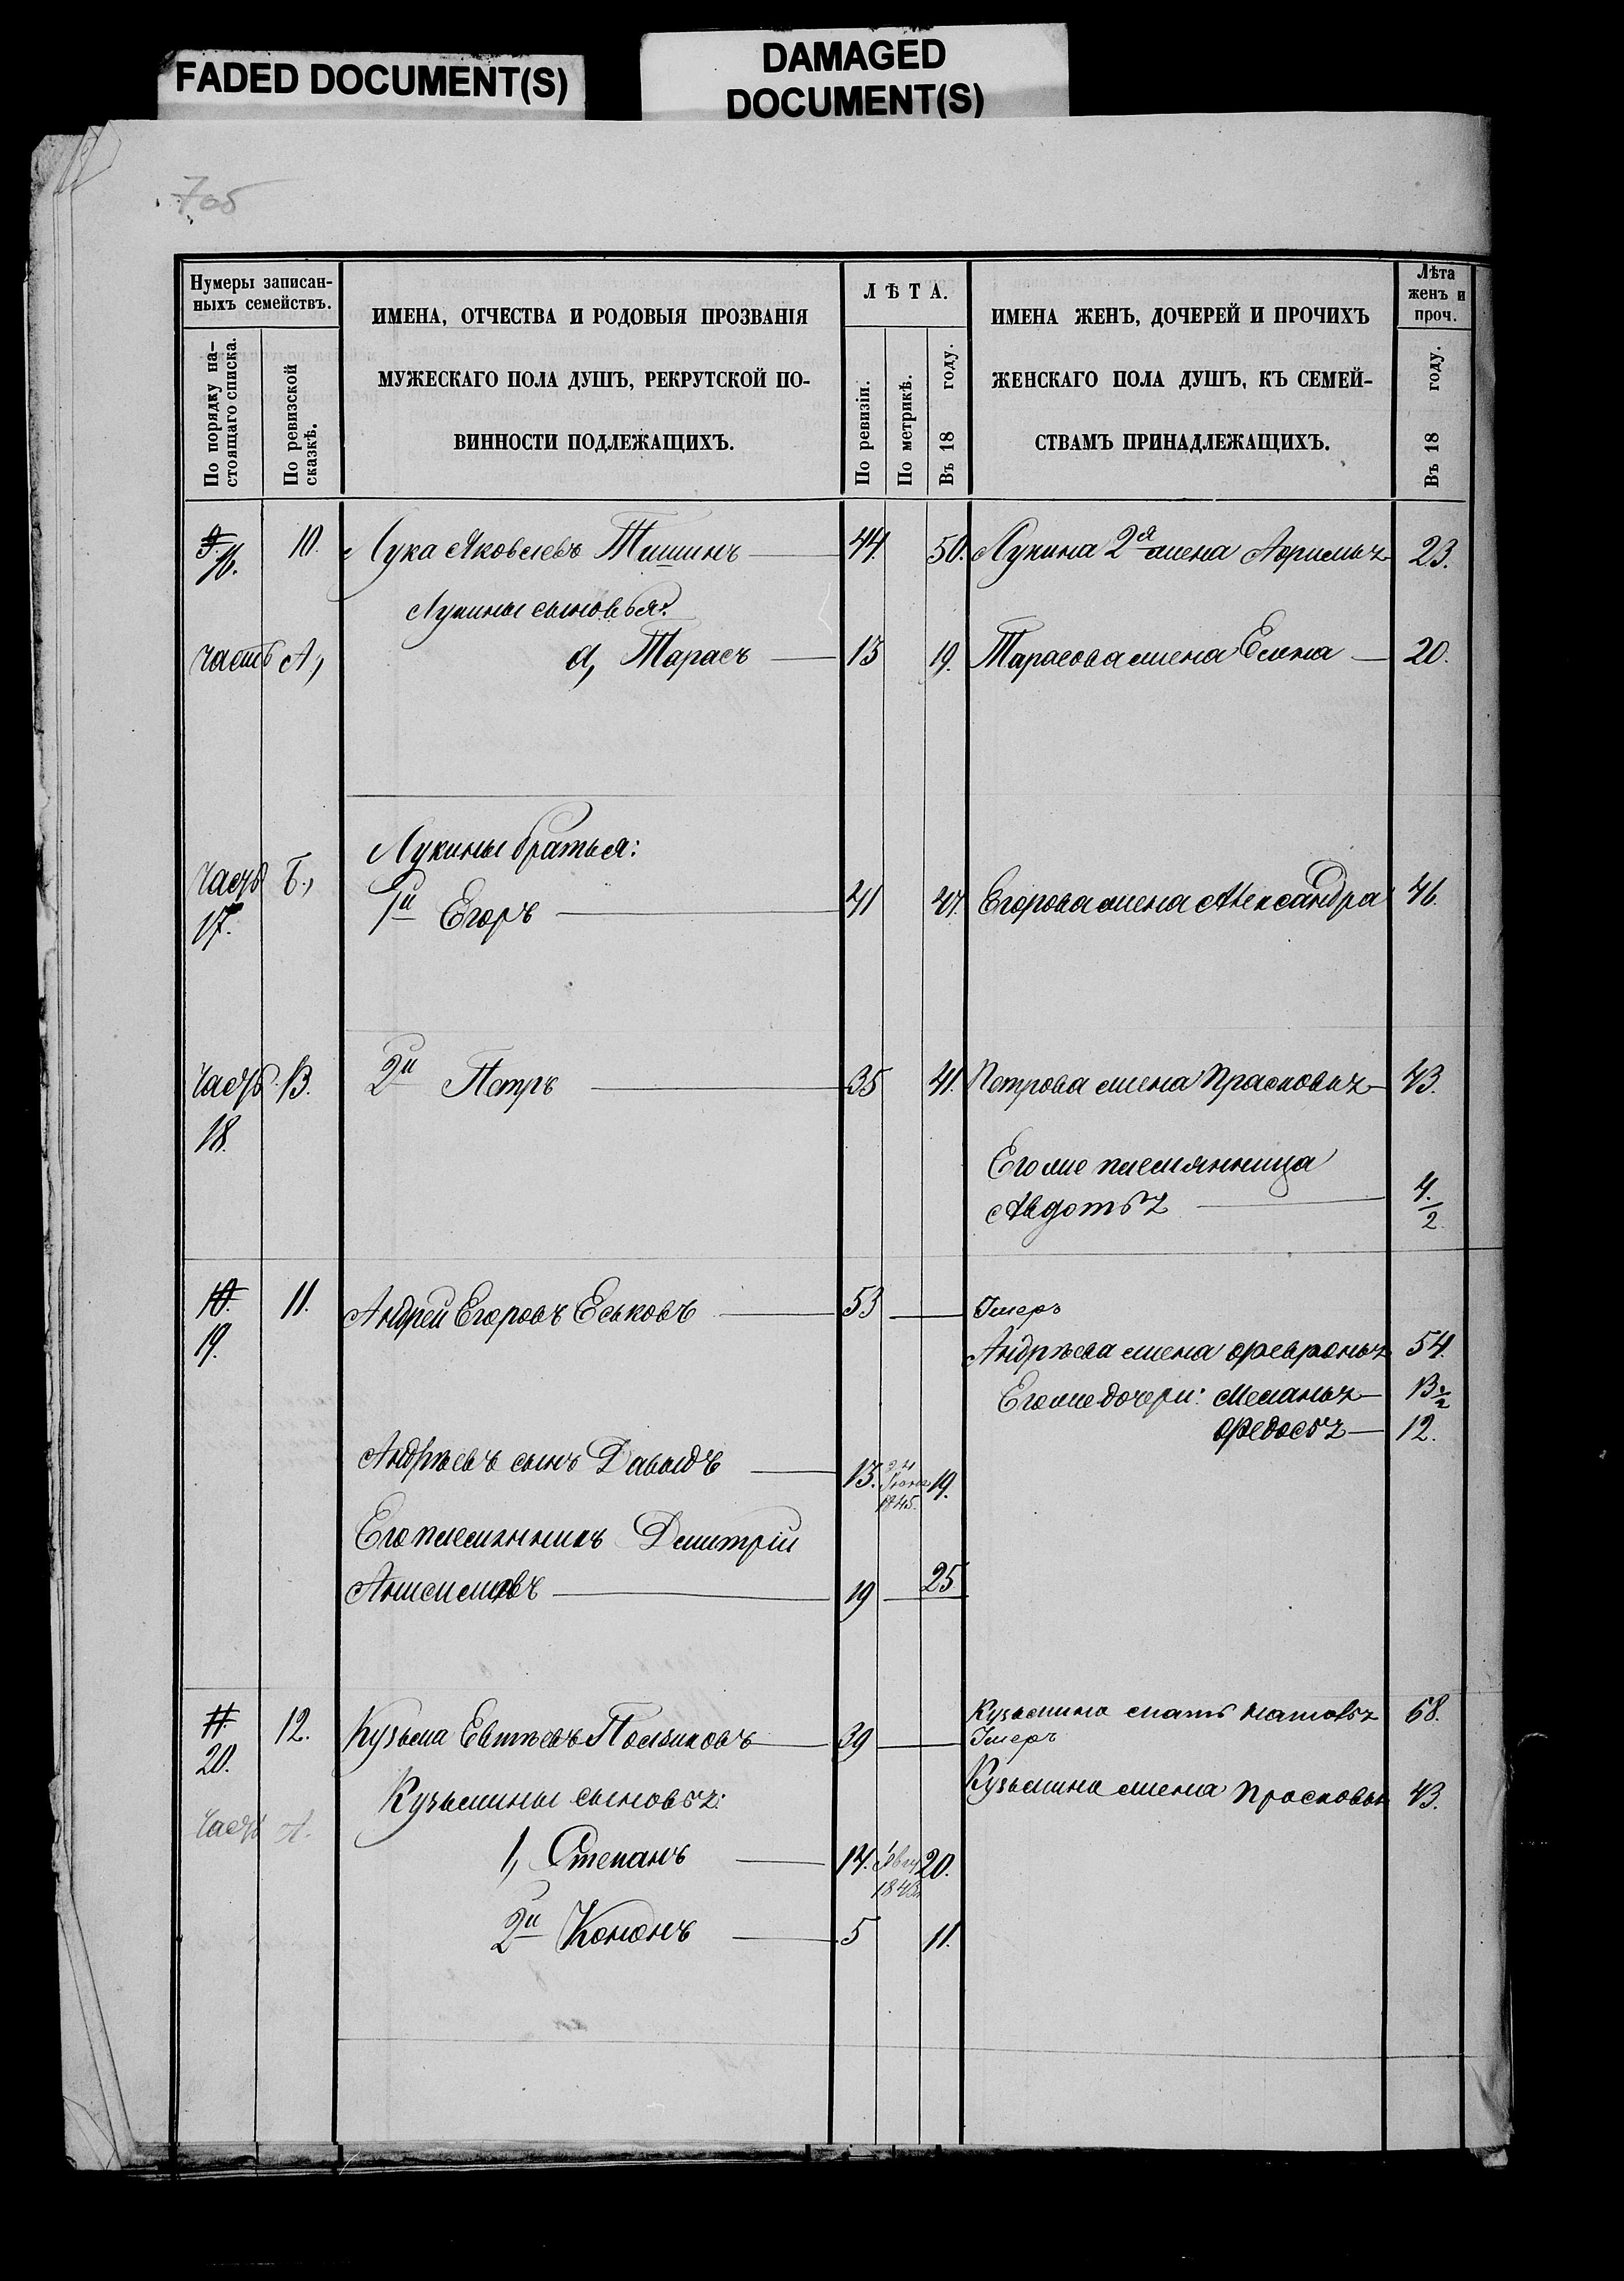 FADED DOCUMENT(S)
DAMAGED
DOCUMENT(S)
7об
Нумеры записан-
ныхъ семействъ.
По порядку на-
стоящаго списка.
По ревизской
сказкѣ.
ИМЕНА, ОТЧЕСТВА И РОДОВЫЯ ПРОЗВАНІЯ
МУЖЕСКАГО ПОЛА ДУШЪ, РЕКРУТСКОЙ ПО-
ВИННОСТИ ПОДЛЕЖАЩИХЪ.
ЛѢТА.
По ревизіи.
По метрикѣ.
Въ 18 году.
ИМЕНА ЖЕНЪ, ДОЧЕРЕЙ И ПРОЧИХЪ
ЖЕНСКАГО ПОЛА ДУШЪ, КЪ СЕМЕЙ-
СТВАМЪ ПРИНАДЛЕЖАЩИХЪ.
Лѣта
женъ и
проч.
Въ 18 году.
9. 10. Лука Яковлевъ Тишинъ 44 50. Лукина 2я жена 23.
16.
Лукины сыновья:
часть А, а, Тарасъ 13 19. Тарасова жена Елена 20.
Лукины братья:
Часть Б., 1й Егоръ 41 47. Егорова жена Александра 46.
17.
Часть В. 2й Петръ 35 41. Петрова жена Прасковья 43.
18.
Егоже племянница
Авдотья 4/2
10. 11. Андрей Егоровъ Еськовъ 53 Умеръ
19. Андрѣева жена Февронья 54.
Егоже дочери: Меланья 13 1/2
Федосья 12.
Андрѣевъ сынъ Давыдъ 13. 1845. 19.
Его племянникъ Дмитрій
Анисимовъ 19 25
11. 12. Кузьма Евтѣевъ 39 Кузьмина мать 68.
20. Умеръ
Кузьмины сыновья: Кузьмина жена Просковья 43.
Часть А.
1, Степанъ 14. 20.
2й Кононъ 5 11.